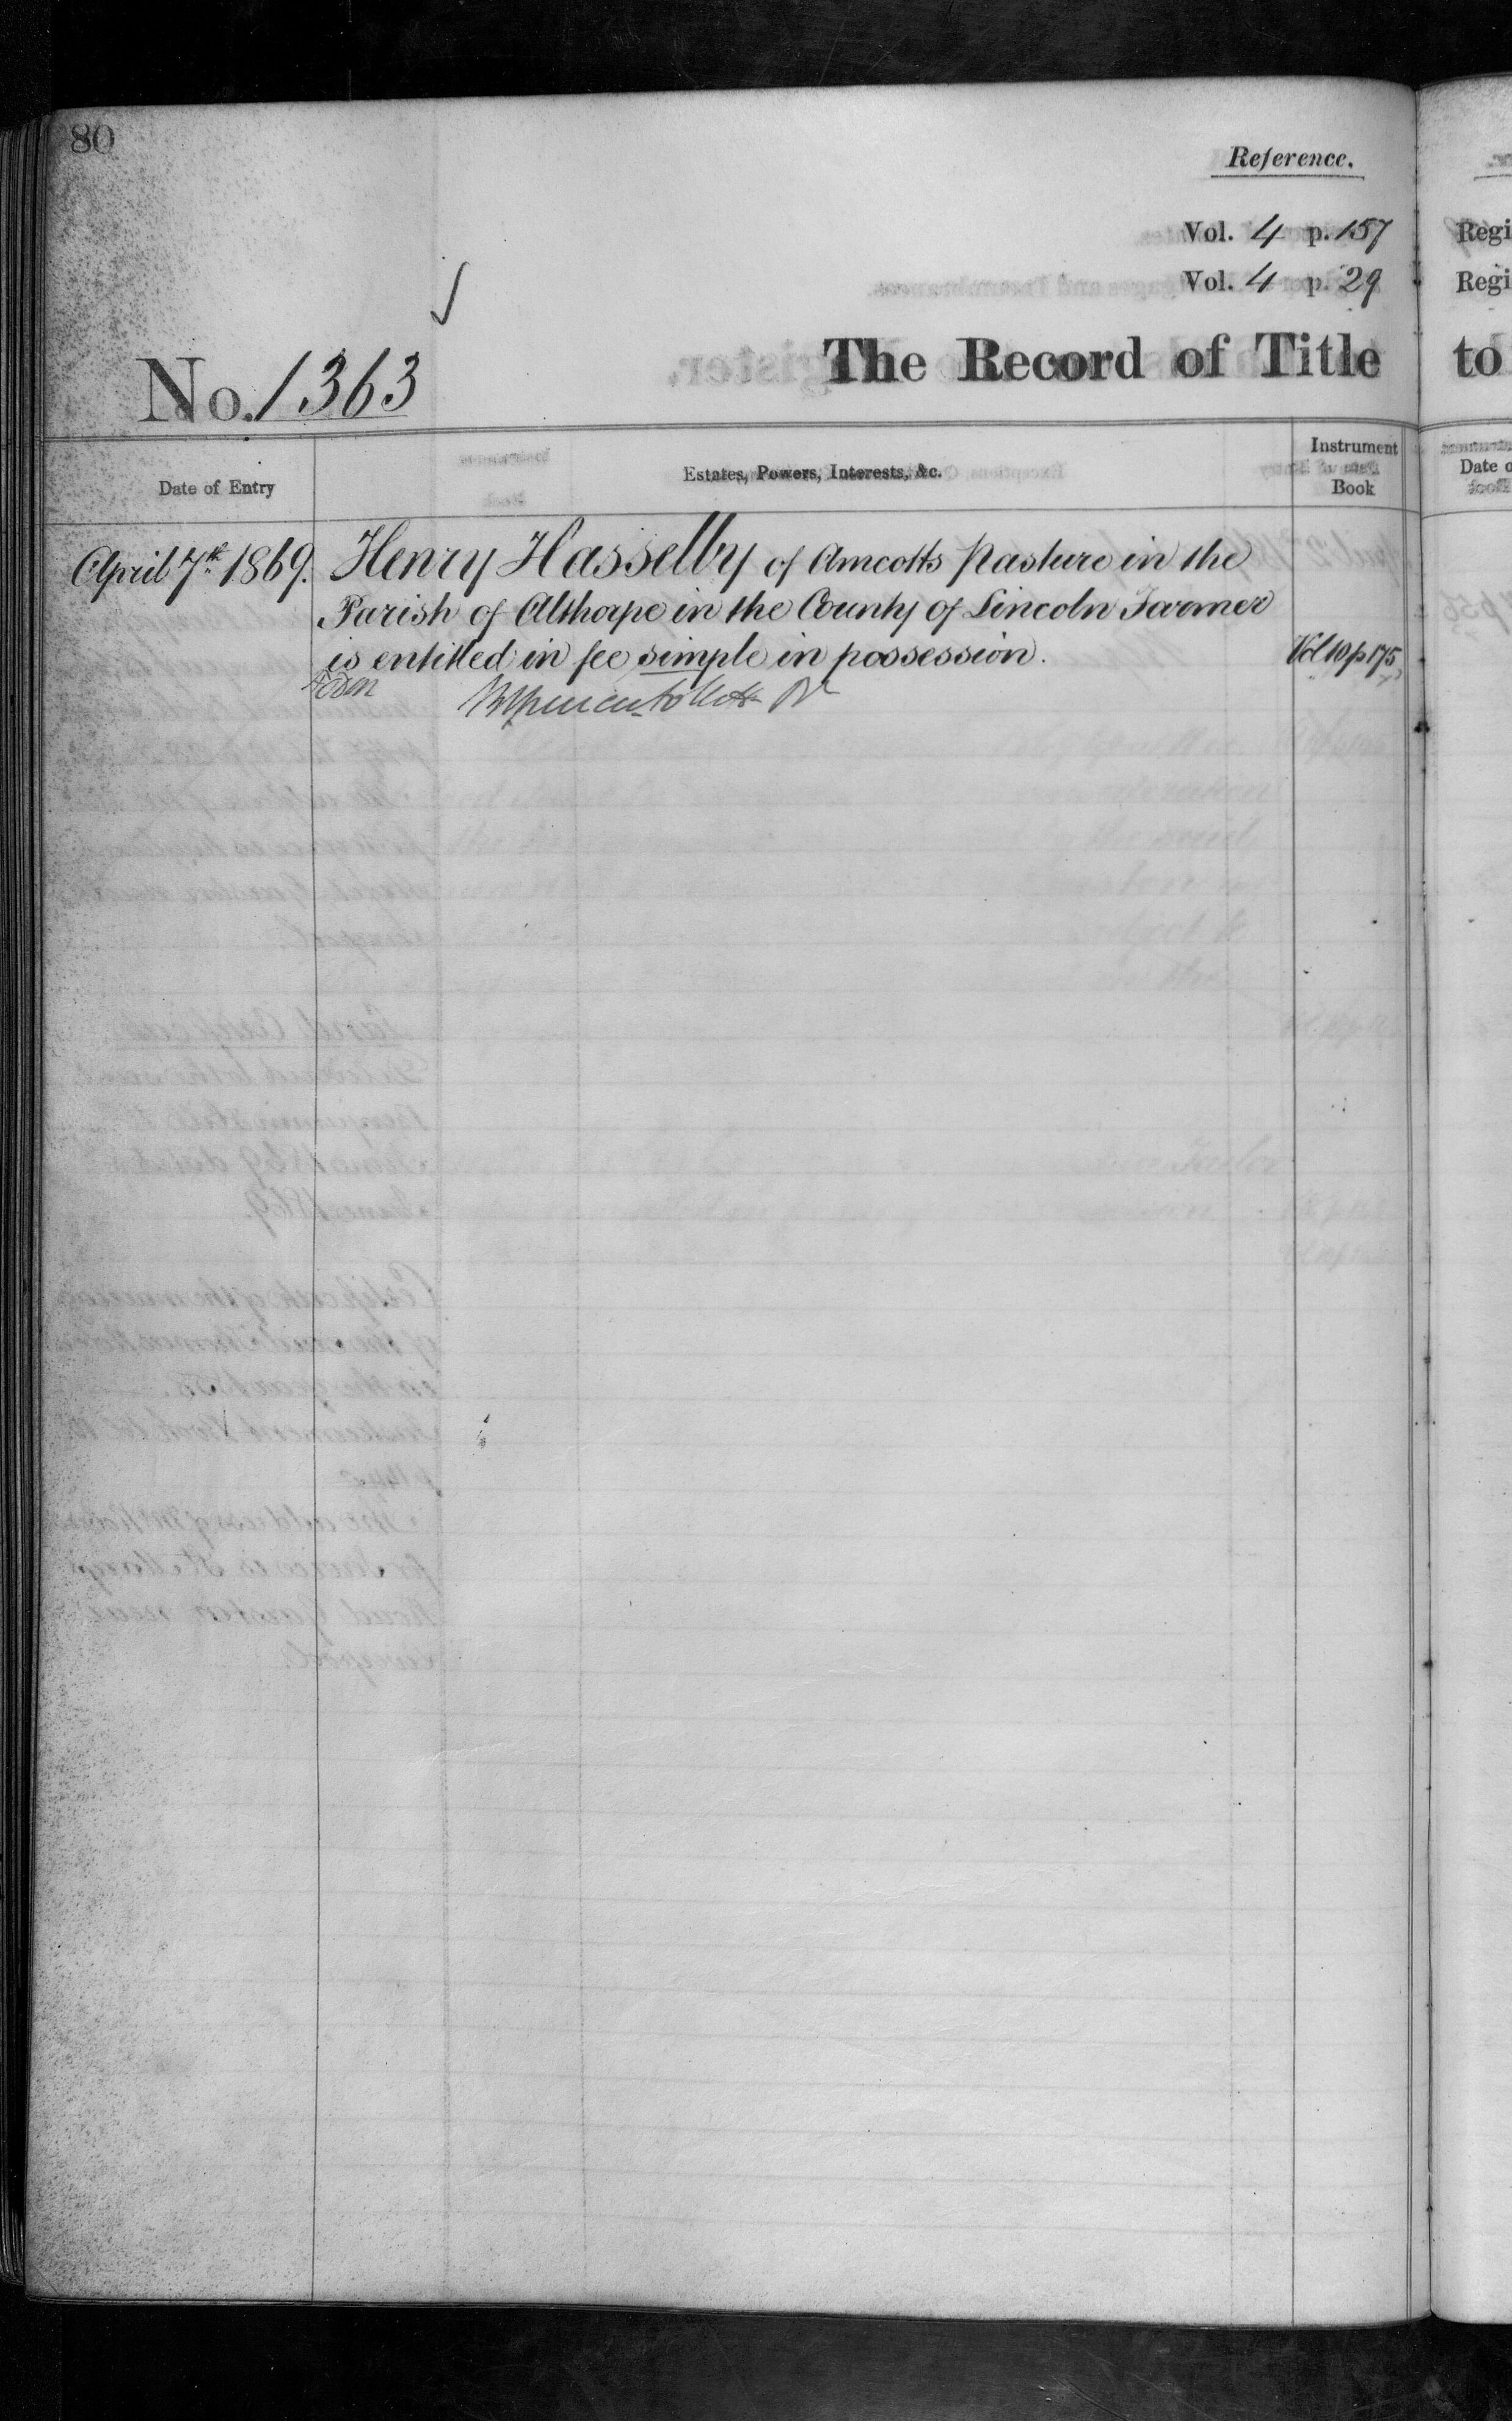 80
Reference.
Vol. 4 p. 157
Vol. 4 p. 29
No. 1363
The Record of Title
Date of Entry
Estates, Powers, Interests, &c.
Instrument
Book
April 7th 1869.
Henry Hasselby of Amcotts Pasture in the
Parish of Althorpe in the County of Lincoln Farmer
is entitled in fee simple in possession.
Vol 10 p 175
Regi
Regi
to
Date o